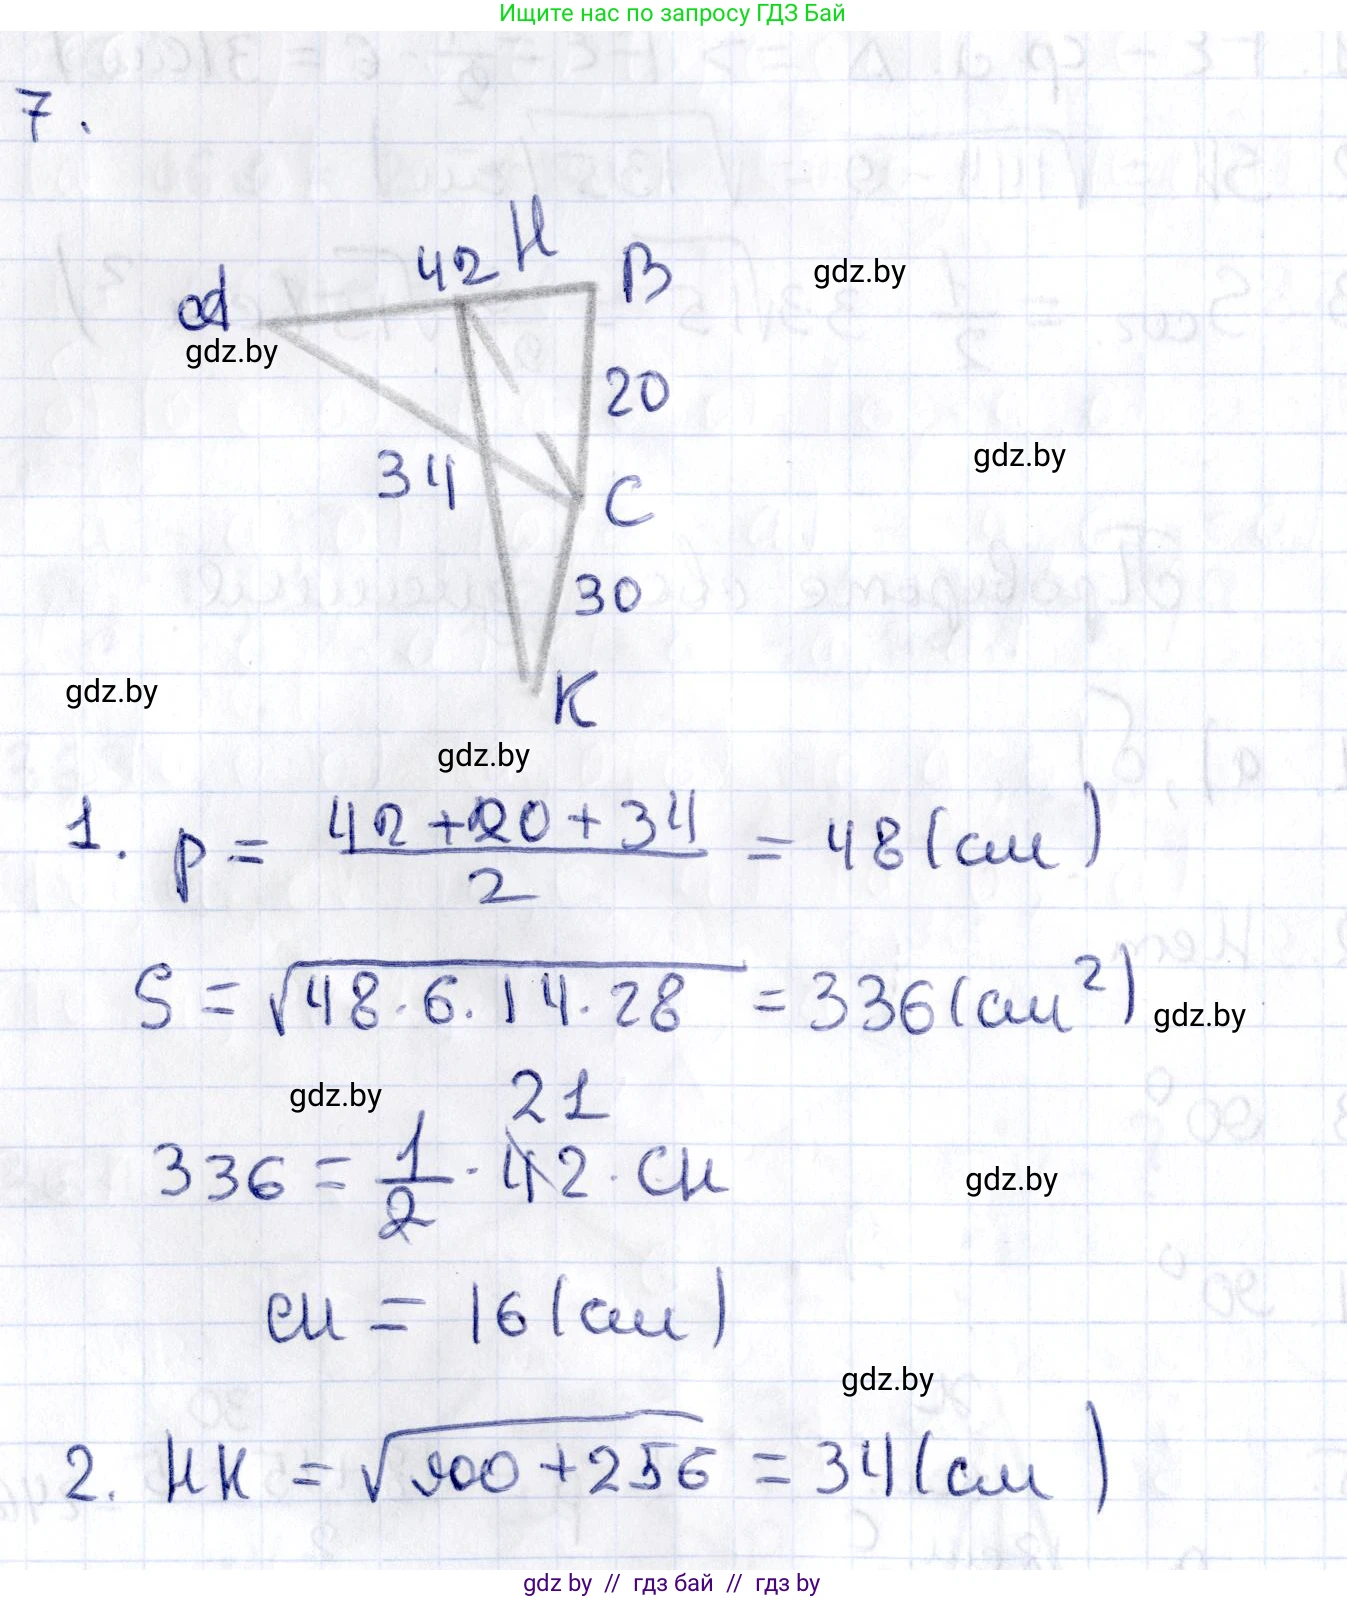 Ищите нас по запросу ГДЗ Бай
7.
42 H B
A
gdz.by
gdz.by
20
34
gdz.by
C
30
gdz.by
K
gdz.by
1. p = (42 + 20 + 34) / 2 = 48 (см)
S = √(48 · 6 · 14 · 28) = 336 (см²)
gdz.by
gdz.by
21
336 = 1/2 · 42 · CH
gdz.by
CH = 16 (см)
gdz.by
2. HK = √(900 + 256) = 34 (см)
gdz by // гдз бай // гдз by